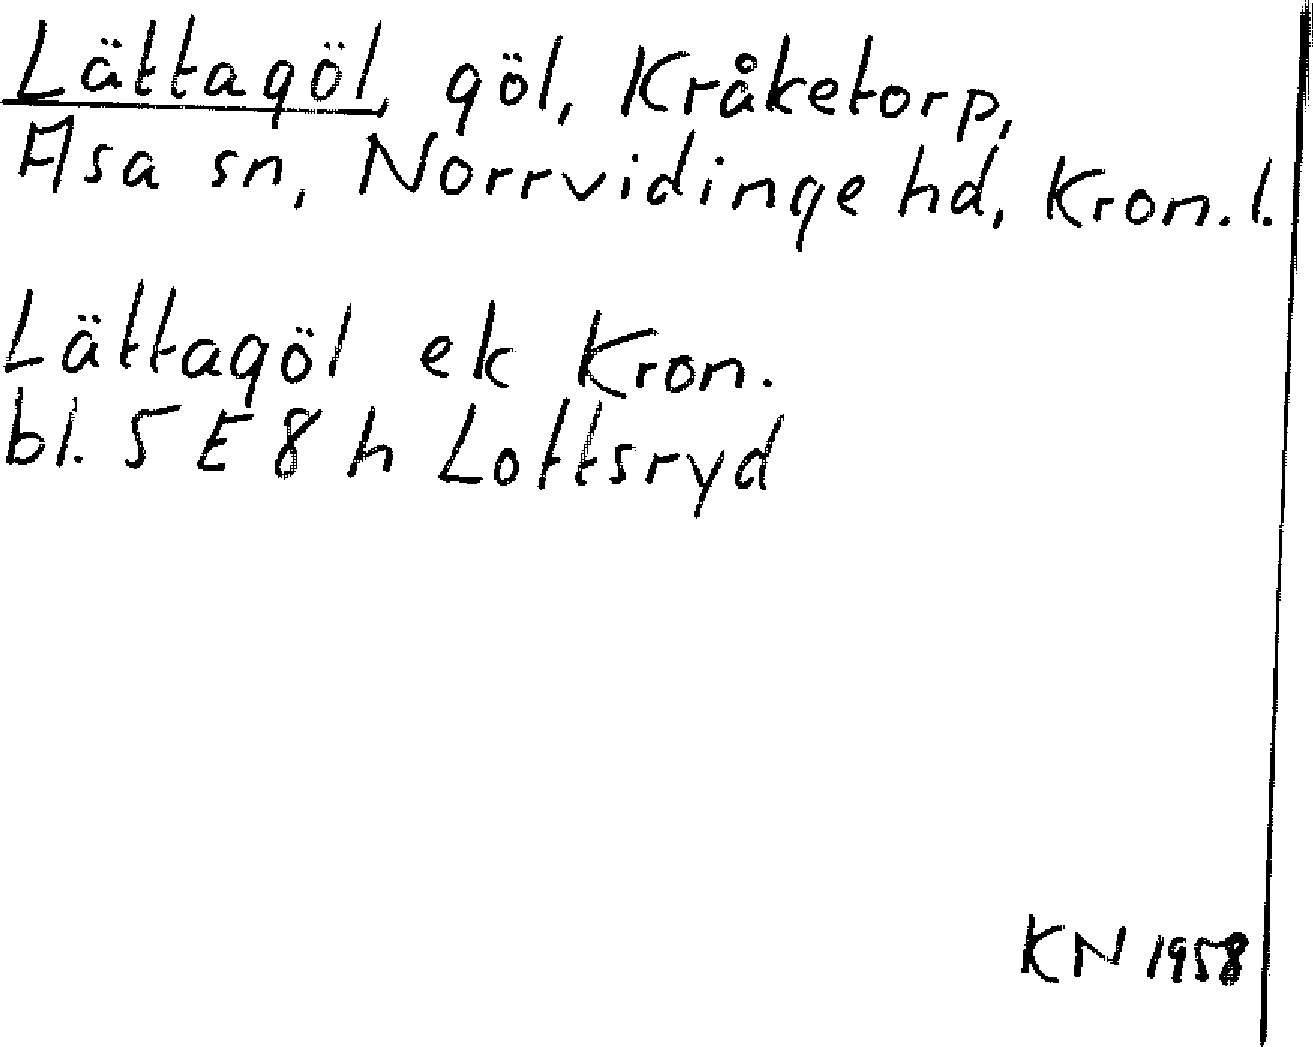 Lättagöl, göl, Kråketorp,
Asa sn, Norrvidinge hd, Kron. l.
Lättagöl ek Kron.
bl. 5 E 8 h Lottsryd
KN 1958